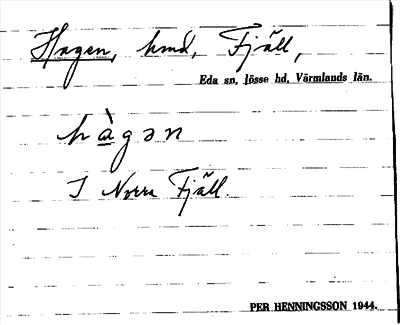 Hagen, hmd, Fjäll,
Eda sn, Jösse hd, Värmlands län.
hàgən
I Norra Fjäll.
PER HENNINGSSON 1944.